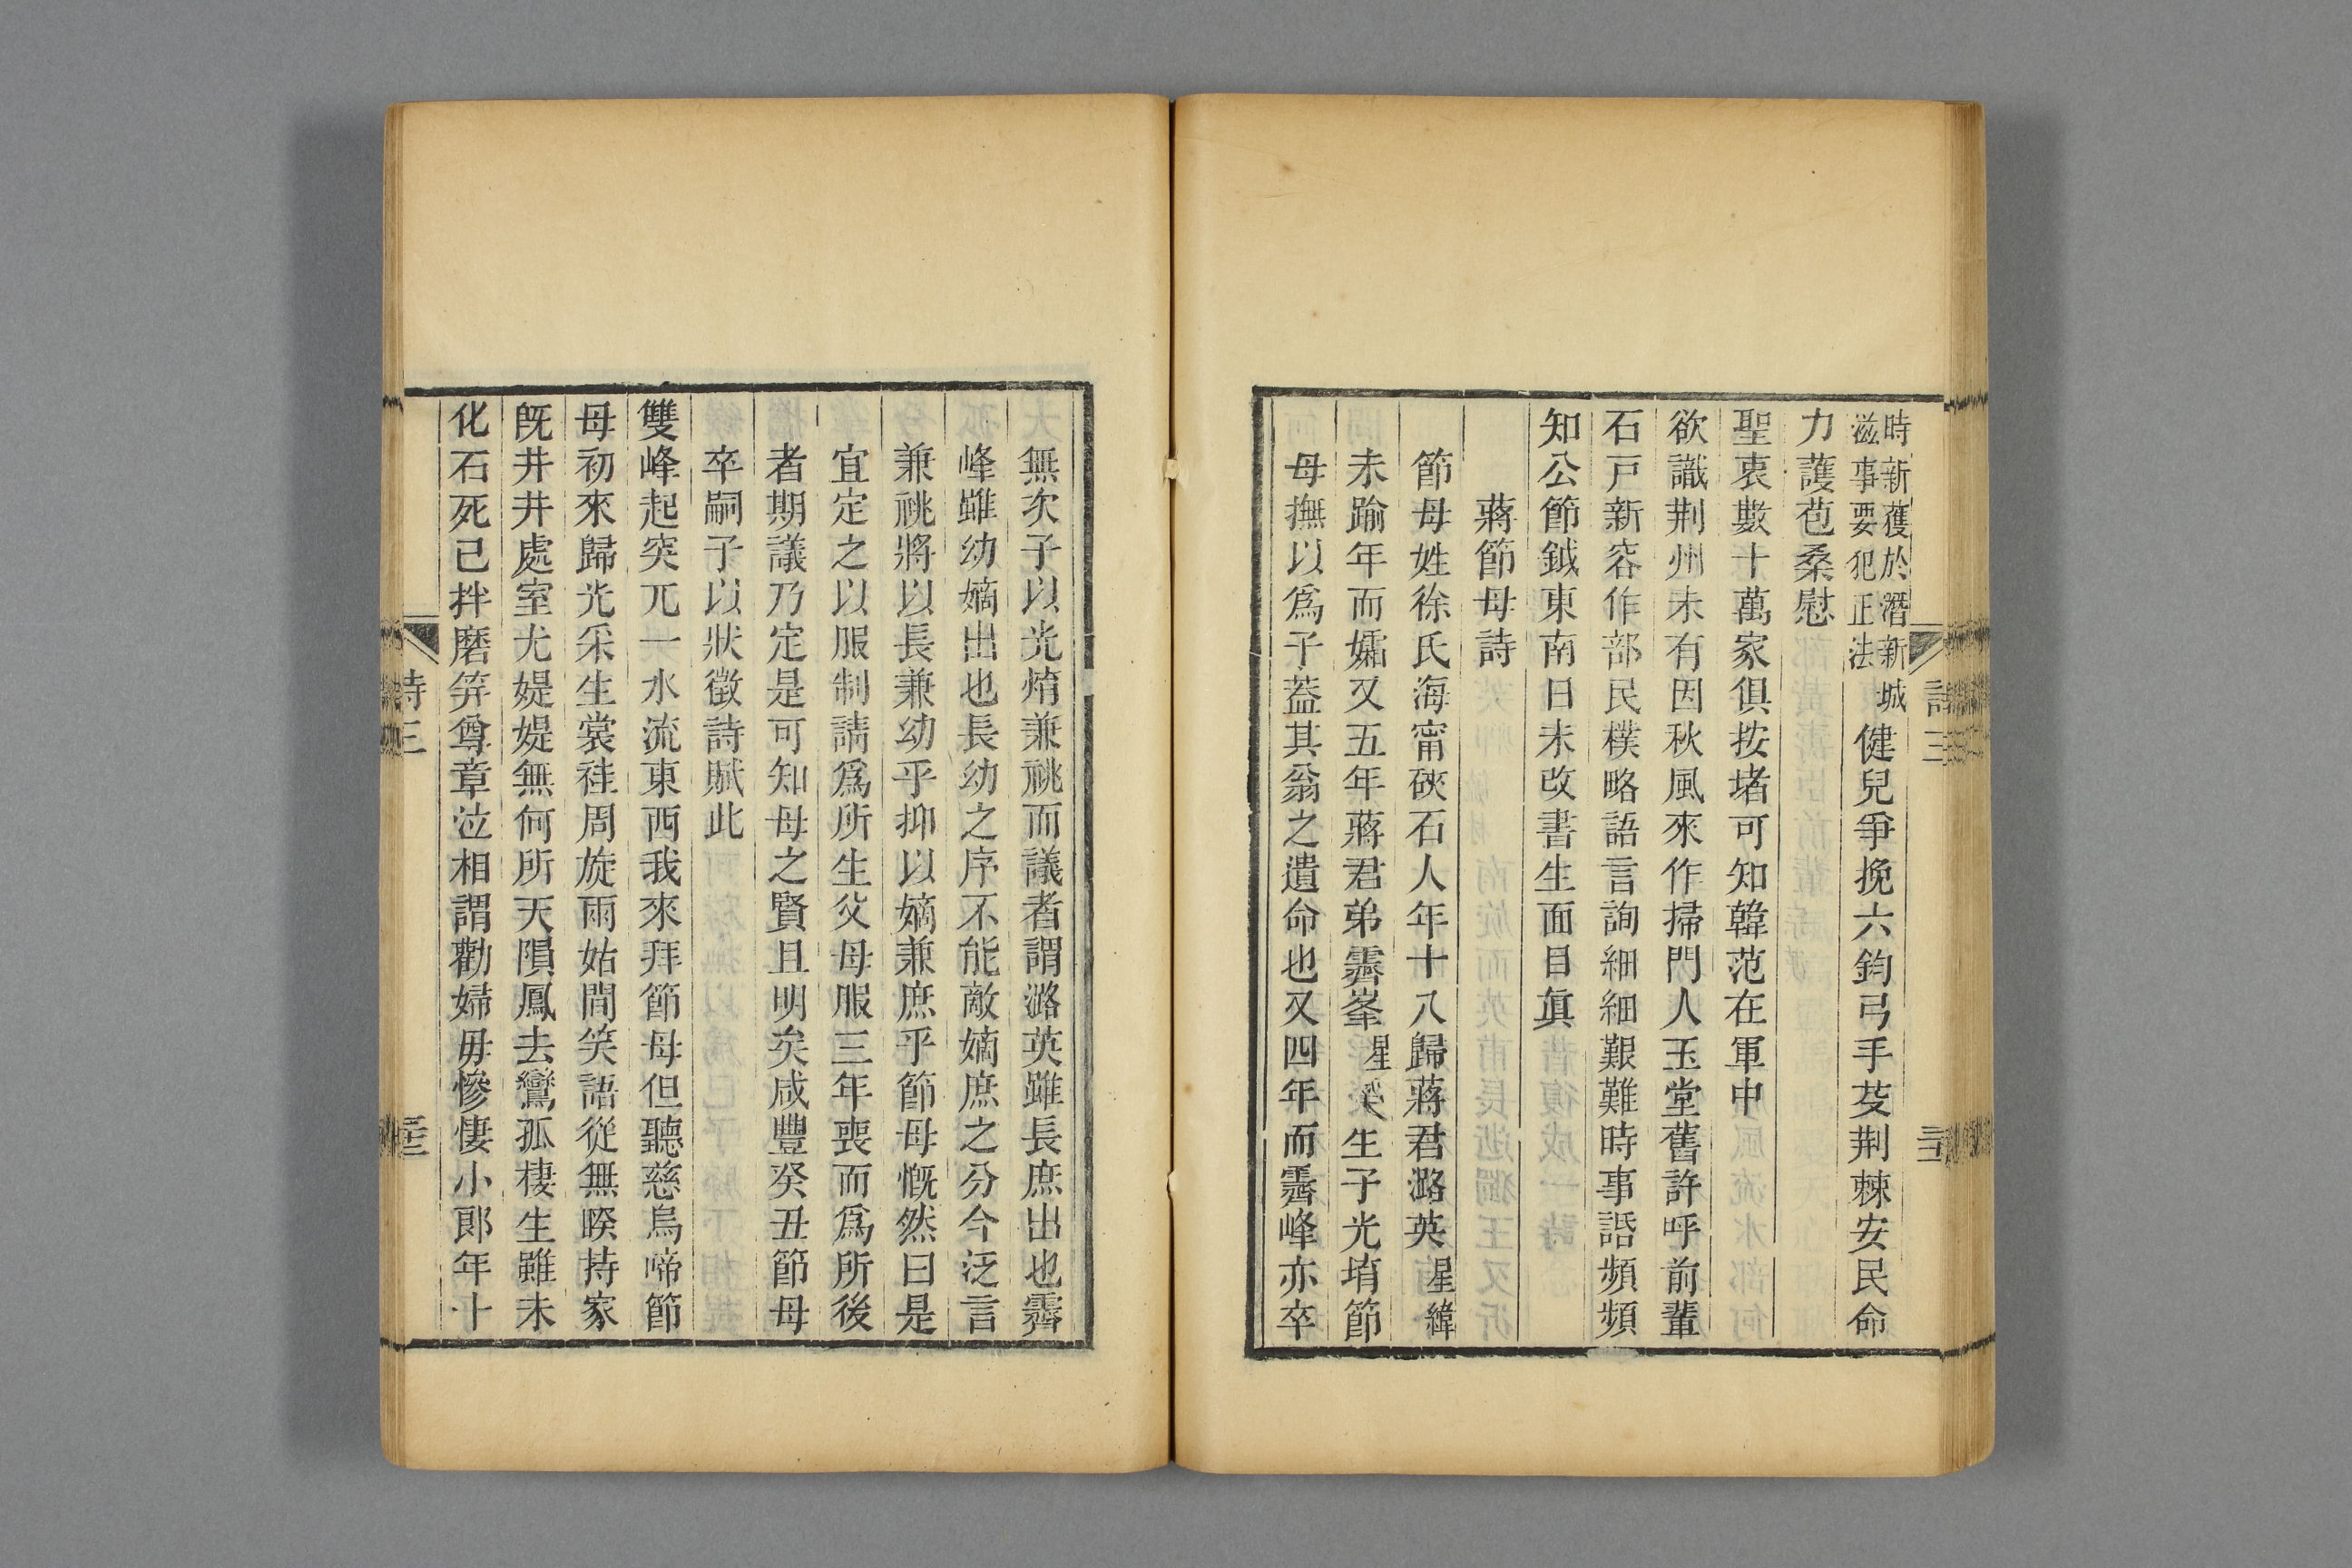 時新獲於潛新城
滋事要犯正法
健兒爭挽六鈞弓手芟荆棘安民命
力護苞桑慰
聖衷數十萬家俱按堵可知韓范在軍中
欲識荆州未有因秋風來作掃門人玉堂舊許呼前輩
石戸新容作部民樸略語言詢細細艱難時事諮頻頻
知公節鉞東南日未改書生面目眞
蔣節母詩
節母姓徐氏海甯硤石人年十八歸蔣君潞英星緯
未踰年而孀又五年蔣君弟霽峯星生子光焴節
母撫以爲子葢其翁之遺命也又四年而霽峰亦卒
詩三
無次子以光焴兼祧而議者謂潞英雖長庶出也霽
峰雖幼嫡出也長幼之序不能敵嫡庶之分今泛言
兼祧將以長兼幼乎抑以嫡兼庶乎節母慨然曰是
宜定之以服制請爲所生父母服三年喪而爲所後
者期議乃定是可知母之賢且明矣咸豐癸丑節母
卒嗣子以狀徵詩賦此
雙峰起突兀一水流東西我來拜節母但聽慈烏啼節
母初來歸光采生裳袿周旋兩姑間笑語從無睽持家
旣井井處室尤媞媞無何所天隕鳳去鸞孤棲生雖未
化石死已拌磨笄尊章泣相謂勸婦毋慘悽小郎年十
詩三